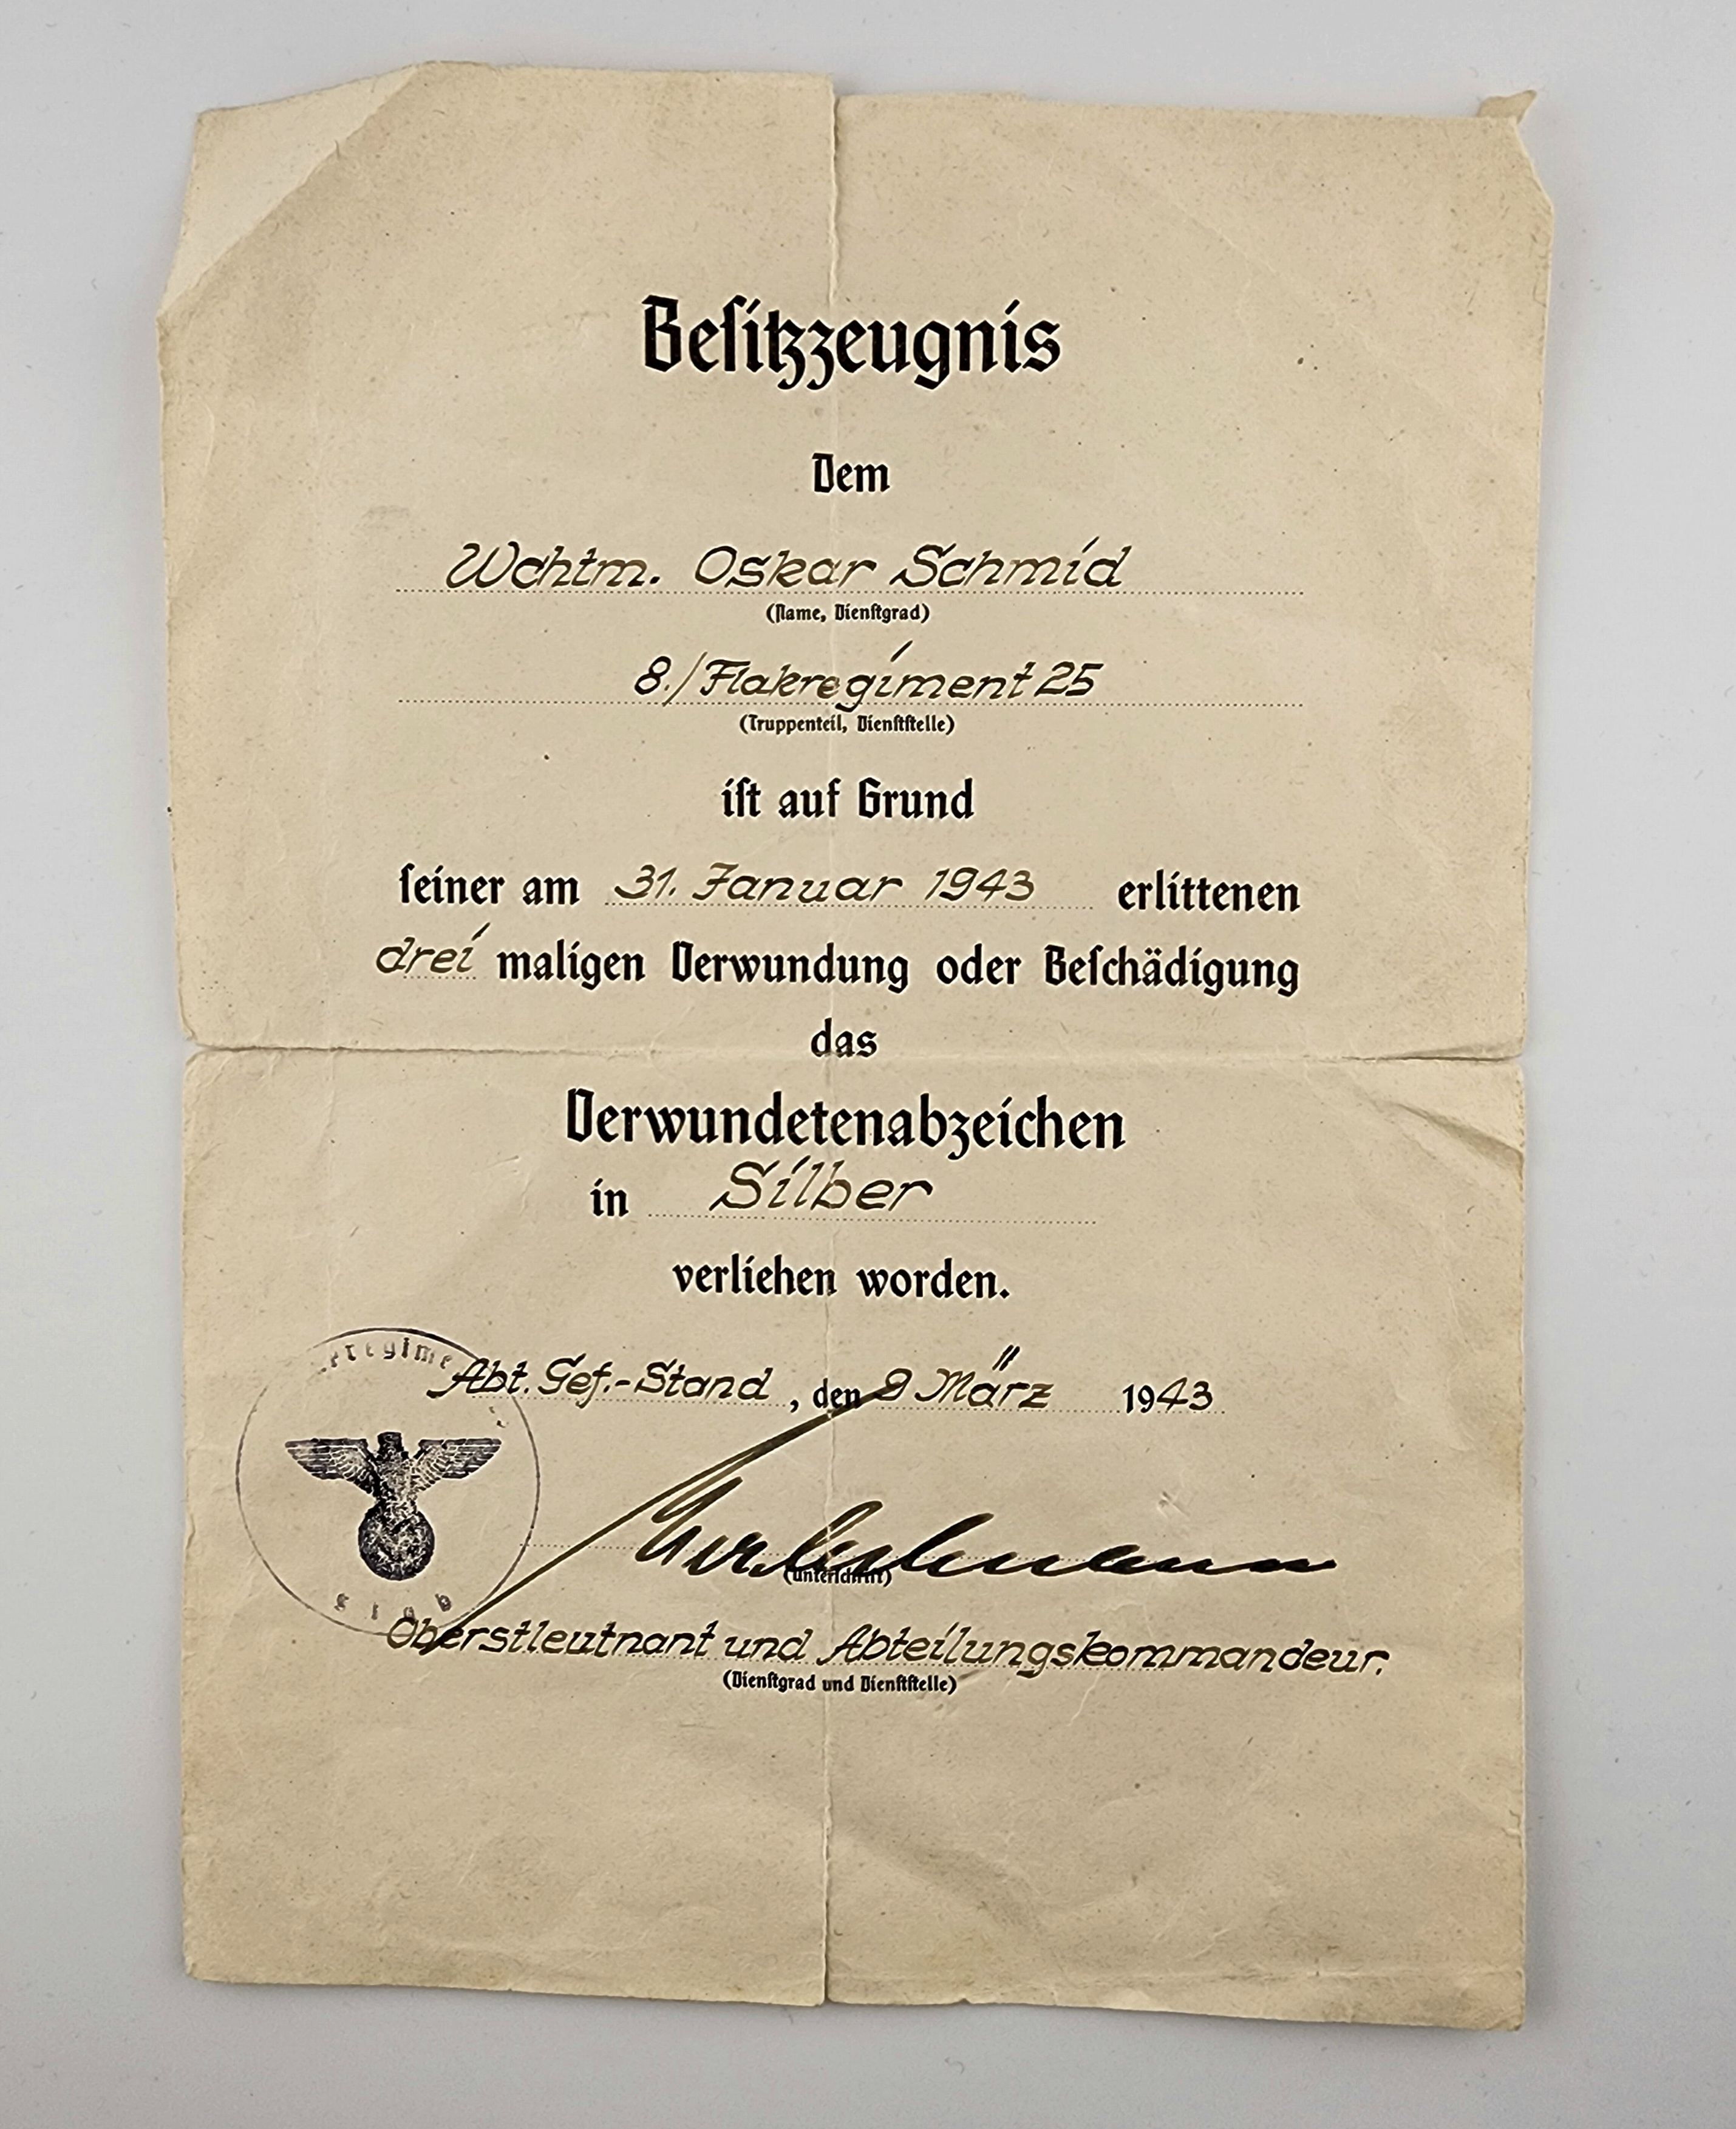 Besitzzeugnis
Dem
Wchtm. Oskar Schmid
(Name, Dienstgrad)
8./Flakregiment 25
(Truppenteil, Dienststelle)
ist auf Grund
seiner am 31. Januar 1943 erlittenen
drei maligen Verwundung oder Beschädigung
das
Verwundetenabzeichen
in Silber
verliehen worden.
Abt. Gef.-Stand, den 9 März 1943
(Unterschrift)
Oberstleutnant und Abteilungskommandeur.
(Dienstgrad und Dienststelle)